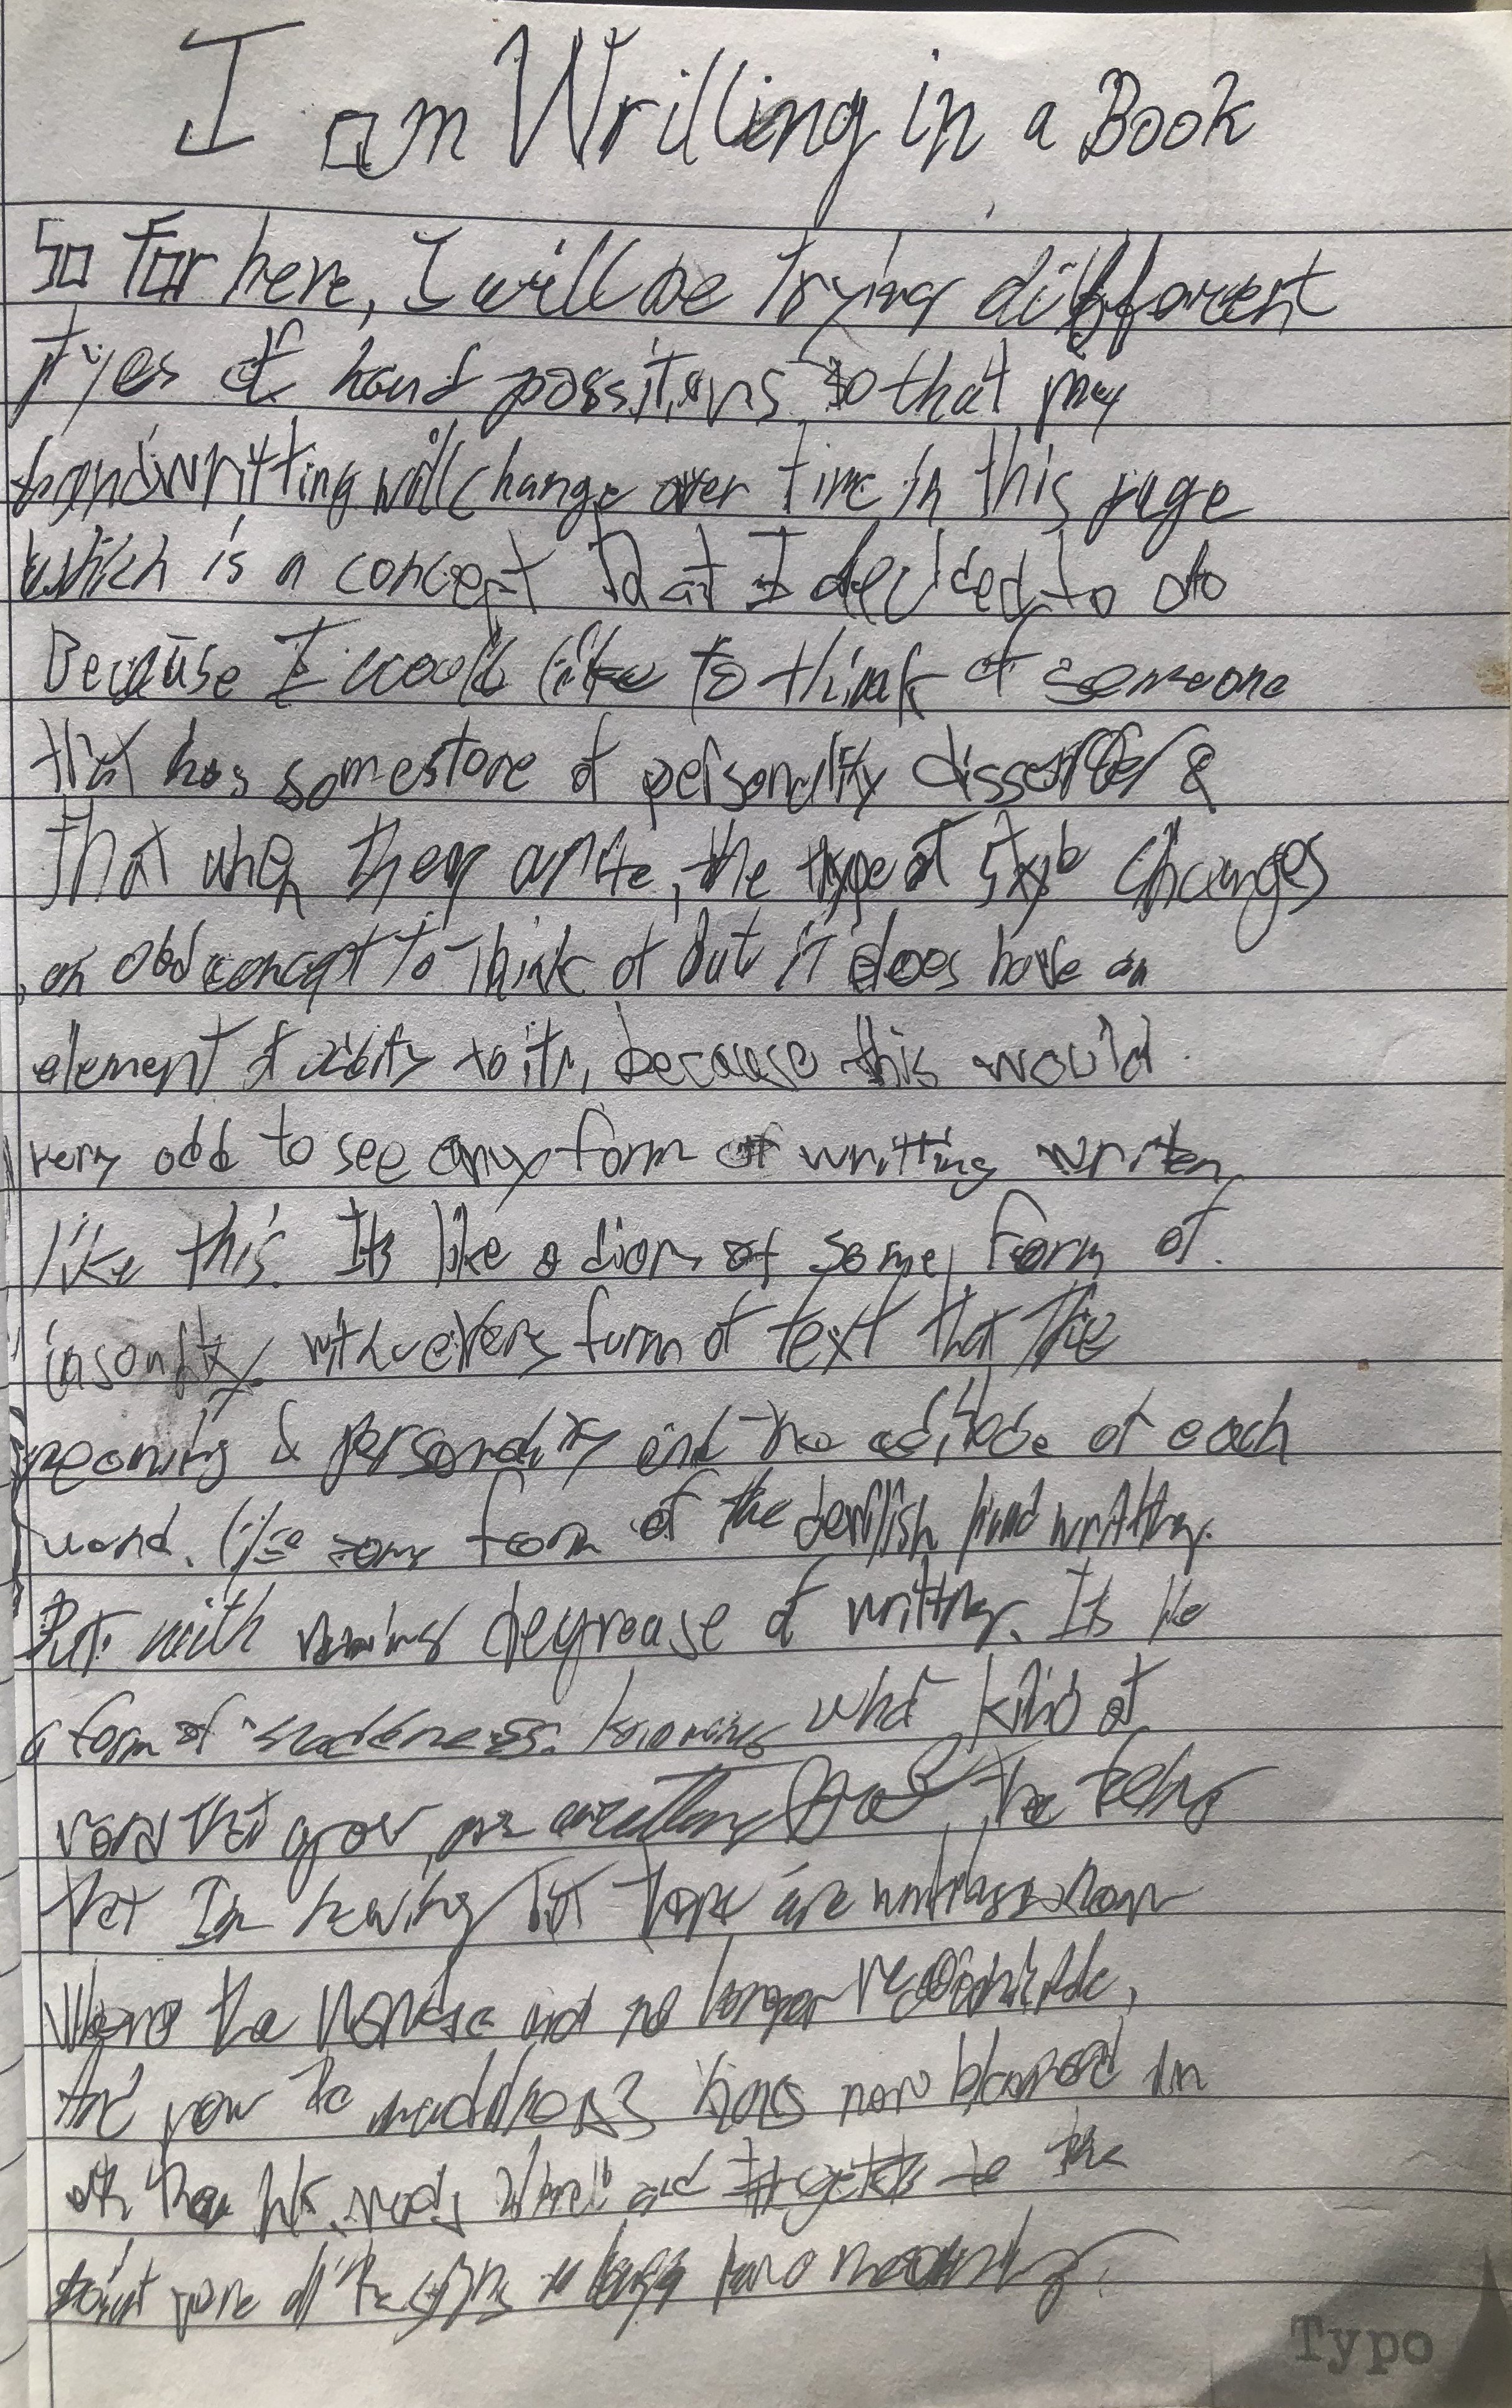 I am Writting in a Book
So For here, I will be trying diffforent
tyes of hand possitions so that my
handwritting will change over time in this page
which is a concept that I decided to do
Because I would like to think of someone
that has somestore of personality disserder &
That when they write, the type of style changes
, an odd concept to think of but it does have an
element of to it, because this would
very odd to see any form of writting writen
like this. Its like a diary of some form of
insanity with every form of text that the
meaning & personality and the aditude of each
word. like some form of the devilish hand writting.
But with degrease of writting. Its like
a form of knowing what kind of
words that grow, are the
that Im having that there are
Where the and no longer
And now the has now in
and to the
point were all the no longer have meaning.
Typo